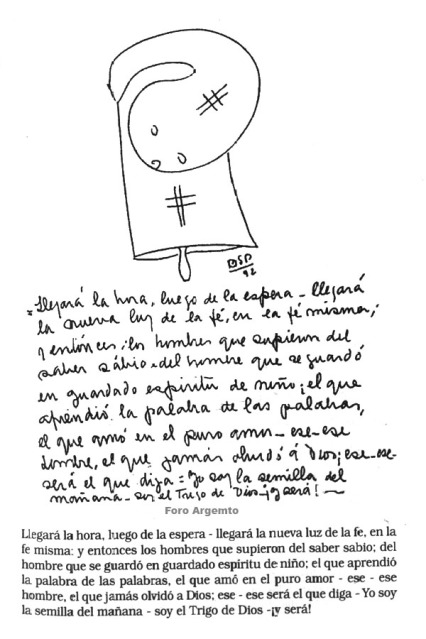 BSP
42
"Llegará la hora, luego de la espera - llegará
la nueva luz de la fé, en la fé misma;
y entónces: los hombres que supieron del
saber sábio. del hombre que se guardó
en guardado espíritu de niño; el que
aprendió la palabra de las palabras,
el que amó en el puro amor - ese - ese
hombre, el que jamás olvidó á Dios; ese - ese -
será el que diga = Yo soy la semilla del
mañana - soy el Trigo de Dios - ¡y será! -
Foro Argemto
Llegará la hora, luego de la espera - llegará la nueva luz de la fe, en la
fe misma: y entonces los hombres que supieron del saber sabio; del
hombre que se guardó en guardado espíritu de niño; el que aprendió
la palabra de las palabras, el que amó en el puro amor - ese - ese
hombre, el que jamás olvidó a Dios; ese - ese será el que diga - Yo soy
la semilla del mañana - soy el Trigo de Dios -¡y será!